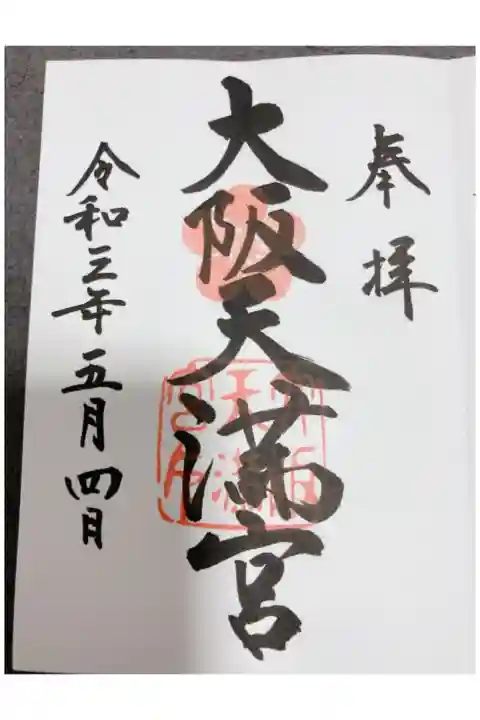 奉拝
大阪天満宮
令和三年五月四日